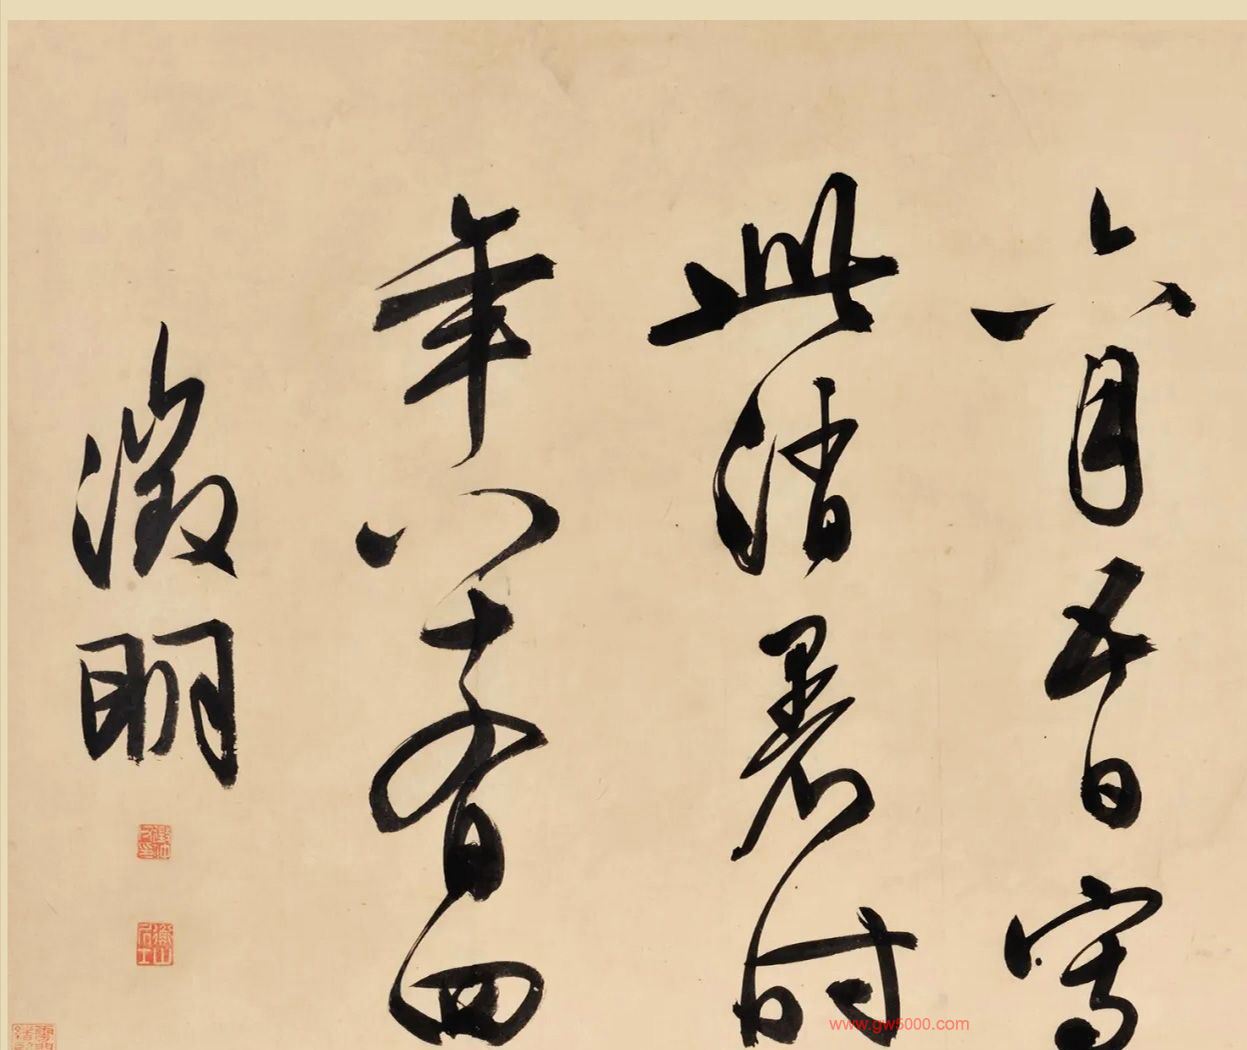 六月五日寫
此消暑时
年八十有四
徵明
www.gw5000.com